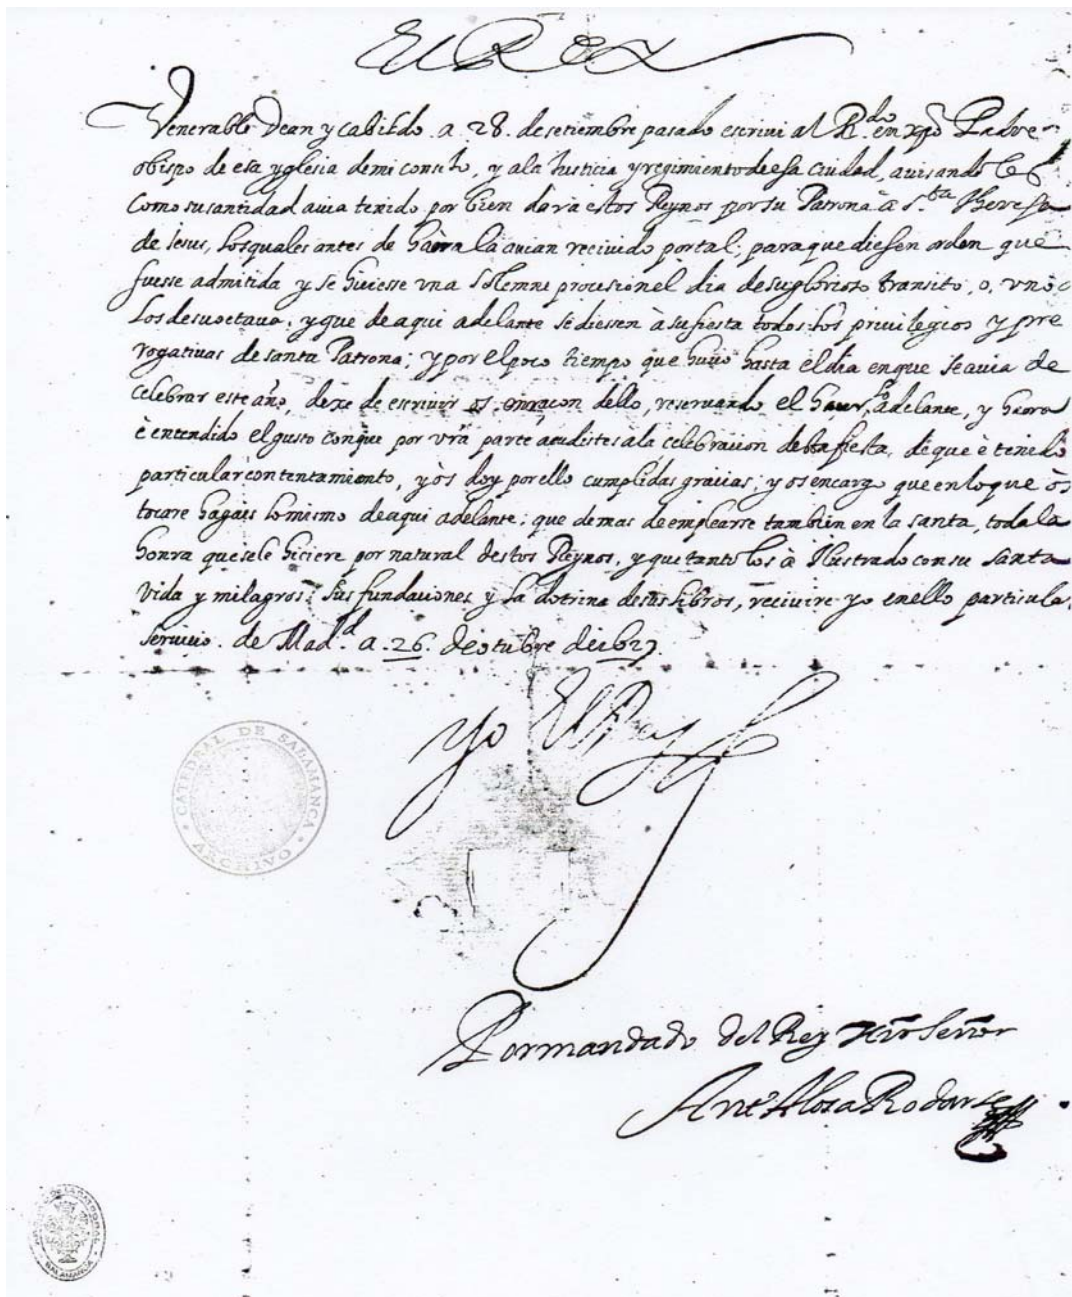 El Rey
Venerable Dean y Cabildo. a 28. de setiembre pasado escrivi al R.do en xpo Padre
obispo de esa yglesia de mi consejo, y ala Justicia y regimiento de esa Ciudad, avisandoles
Como su santidad avia tenido por bien dar a estos Reynos por su Patrona à s.ta Theresa
de Jesus, los quales antes de haora la avian recivido por tal; para que diesen orden que
fuesse admitida y se hiciesse vna solemne procesion el dia de su glorioso transito, o, vno
Los de su octava; y que de aqui adelante se diesen à su fiesta todos los privilegios y pre
rogativas de santa Patrona; y por el poco tiempo que huvo hasta el dia en que se avia de
Celebrar este año, dexe de escrivir os, en raçon dello, reservando el adelante, y haora
è entendido el gusto con que por vra parte acudistes ala celebracion desta fiesta, de que è tenido
particular contentamiento, y òs doy por ello cumplidas gracias; y os encargo que en lo que òs
tocare hagais lo mismo de aqui adelante; que demas de emplearse tambien en la santa, toda la
honra que se le hiciere por natural destos Reynos, y que tanto los à Ilustrado con su santa
Vida y milagros; sus fundaciones y la dotrina de sus libros, recivire yo en ello particular
servicio. de Mad.d a .26. de otubre de 1627.
yo El Rey
CATEDRAL DE SALAMANCA
ARCHIVO
Por mandado del Rey nro señor
Ant.o Alosa Rodarte
SALAMANCA